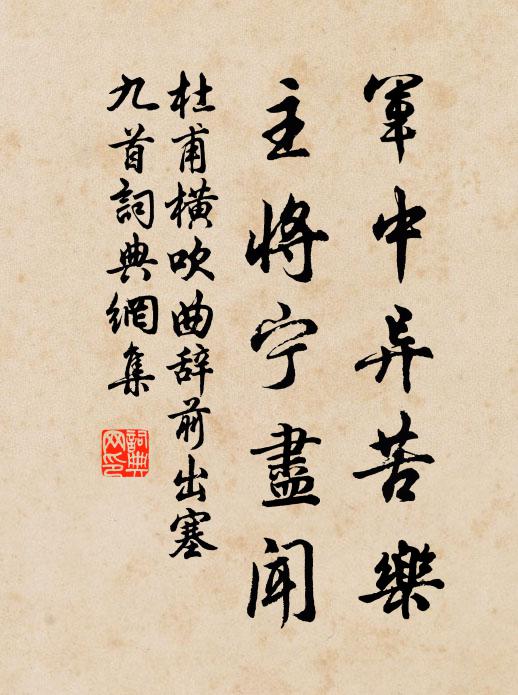 軍中异苦樂
主將宁盡聞
杜甫橫吹曲辞前出塞
九首詞典網集
詞典
网印